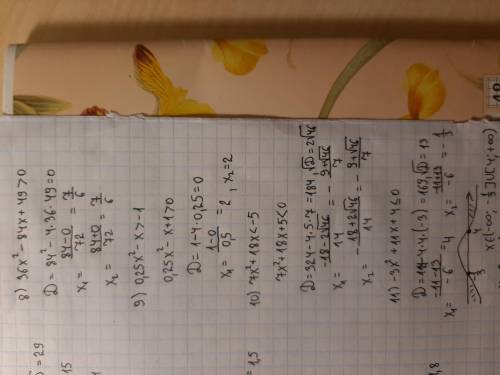 8) 36x² - 84x + 49 > 0
D = 84² - 4·36·49 = 0
x₁ = (84-0)/72 = 7/6
x₂ = (84+0)/72 = 7/6
9) 0,25x² - x > -1
0,25x² - x + 1 > 0
D = 1 - 4·0,25 = 0
x₁ = (1-0)/0,5 = 2, x₂ = 2
10) 7x² + 18x < -5
7x² + 18x + 5 < 0
D = 324 - 4·5·7 = 184, √D = 2√46
x₁ = (-18-2√46)/14 = - (9+√46)/7
x₂ = - (18+2√46)/14 = - (9+√46)/7
11) -3x² + 11x + 4 ≤ 0
D = 11 - 4·4·(-3) = 169, √D = 13
x₁ = (-11-13)/-6 = 4 x₂ = (-11+13)/-6 = -1/3
x∈(-∞; -1/3]∪[4; +∞)
= 29
15
= 1,5
1,8